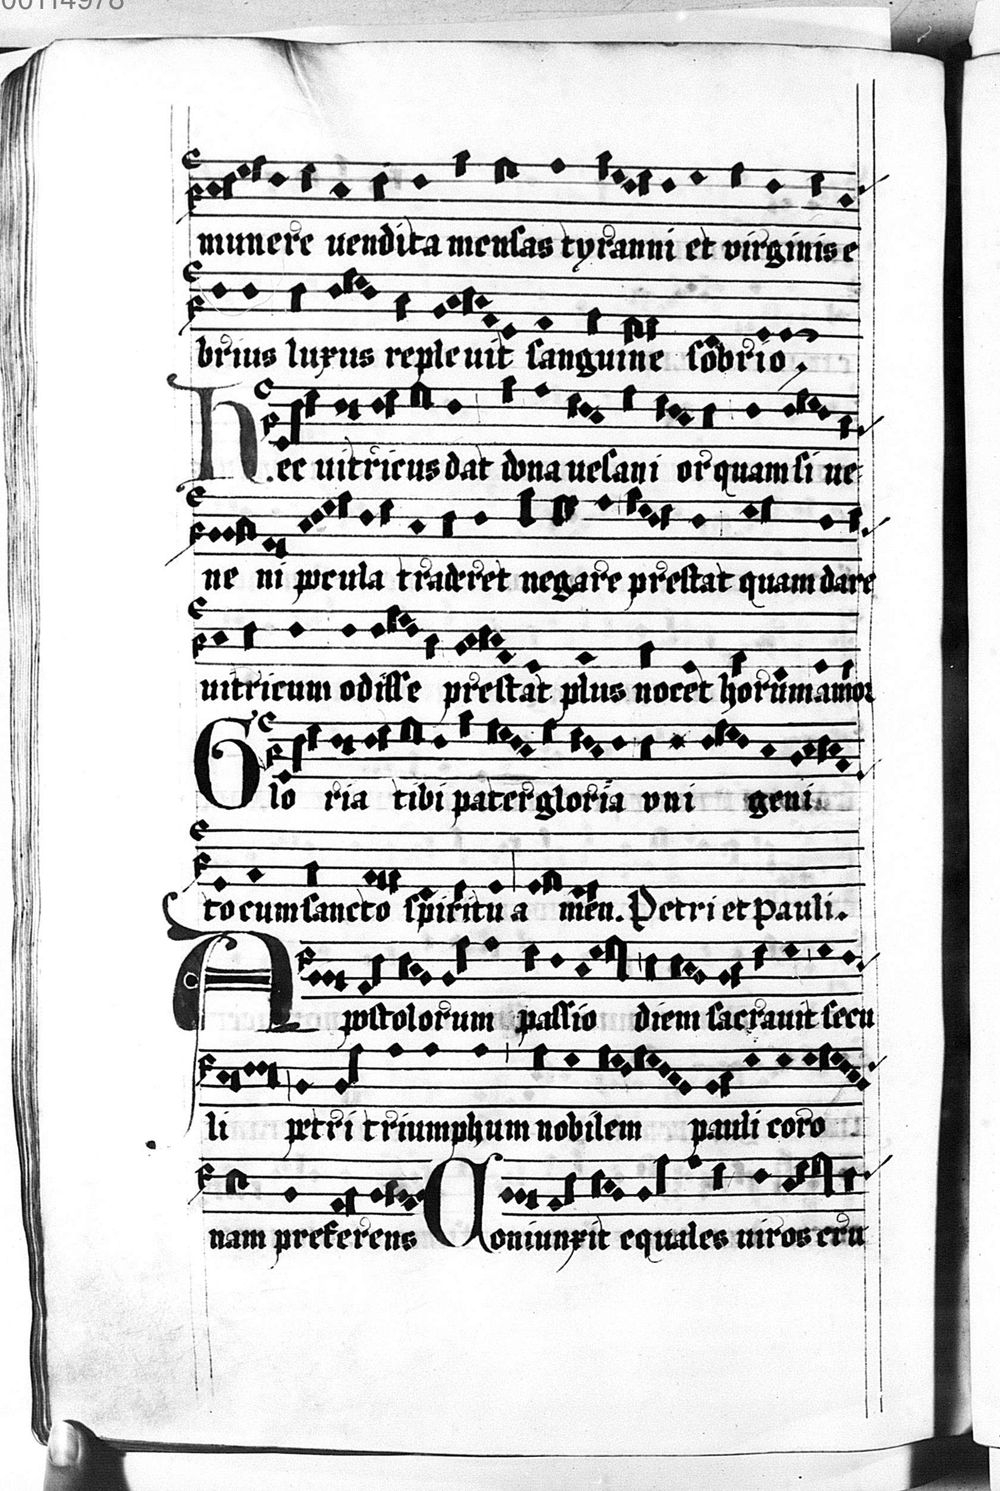 00114978
munere uendita mensas tyranni et virginis e
brius luxus repleuit sanguine sobrio.
Hec uitricus dat dona uesani or quam si ue
ne ni pocula traderet negare prestat quam dare
uitricum odisse prestat plus nocet horum amor
Glo ria tibi pater gloria vni geni
to cum sancto spiritu a men. Petri et Pauli.
Apostolorum passio diem sacrauit secu
li petri triumphum nobilem pauli coro
nam preferens Coniunxit equales uiros cru